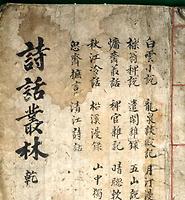 白雲小說 龍泉談寂記 月汀漫
櫟翁稗說 遣閑雜錄 五山說
慵齋叢話 稗官雜記 晴牕軟
秋江冷話 松溪漫錄 山中獨
思齋摭言 清江詩話
詩話叢林 乾